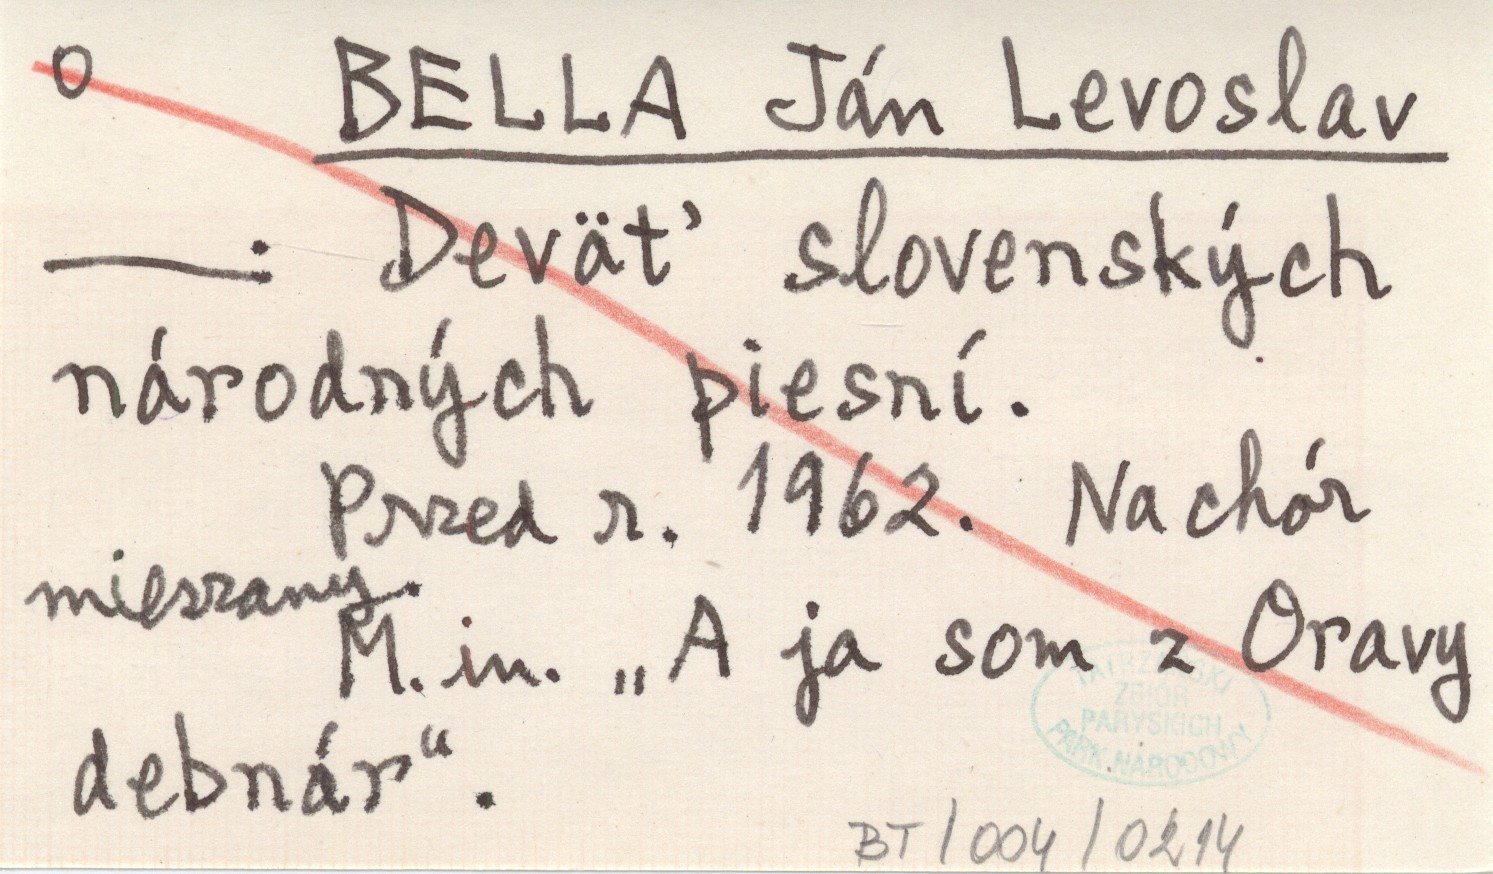 o BELLA Ján Levoslav
——: Deväť slovenských
národných piesní.
Przed r. 1962. Na chór
mieszany.
M. in. „A ja som z Oravy
debnár“.
TATRZAŃSKI
ZBIÓR
PARYSKICH
PARK NARODOWY
BT/004/0214